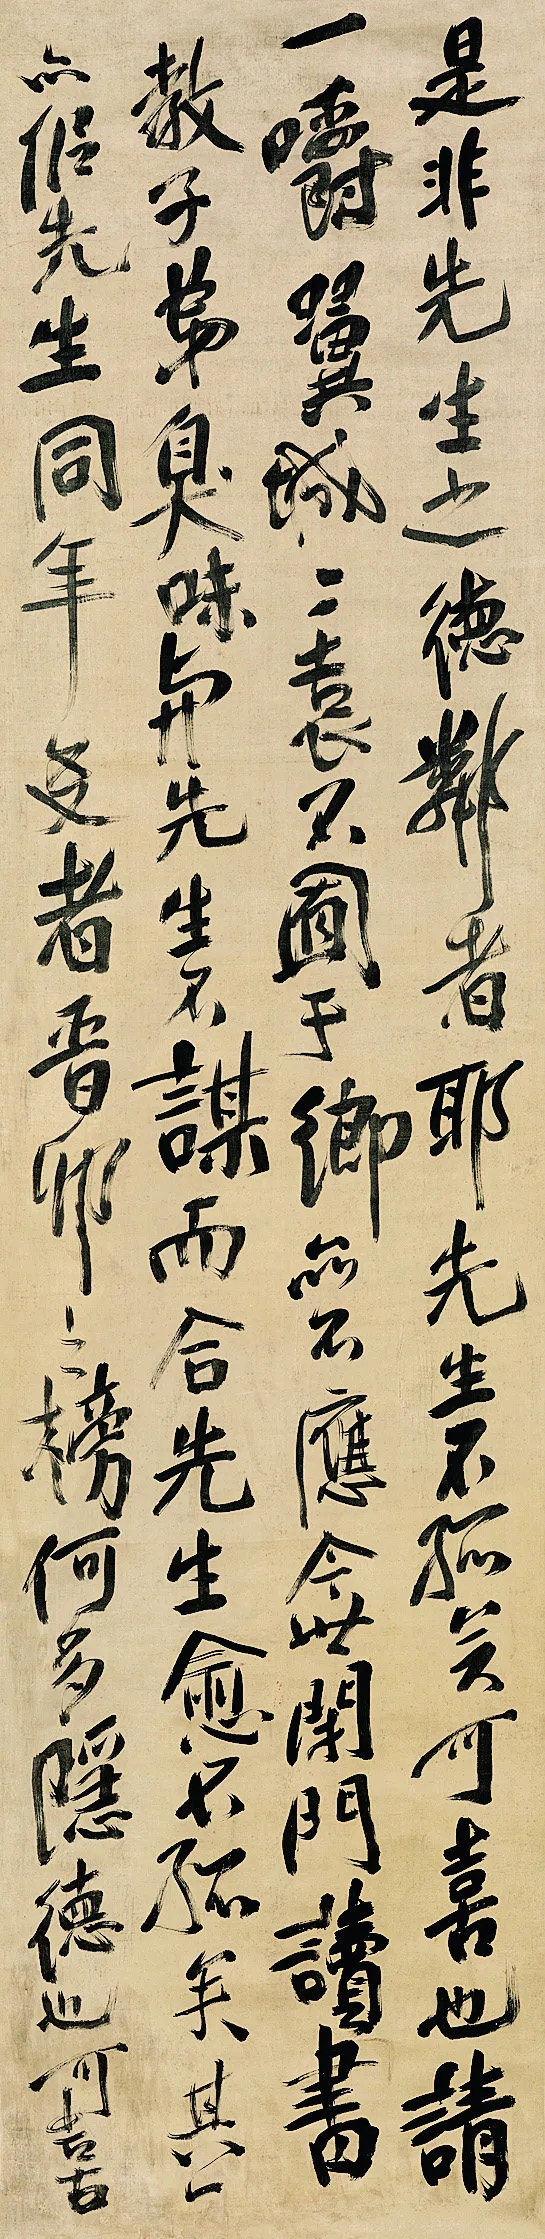 是非先生之德鄰者耶先生不孤矣可喜也請
一嚼翼城二袁不囿于鄉亦不應今世閉門讀書
教子弟臭味與先生不謀而合先生愈不孤矣其一
亦侶先生同年友者晉卯之榜何多隱德也可喜